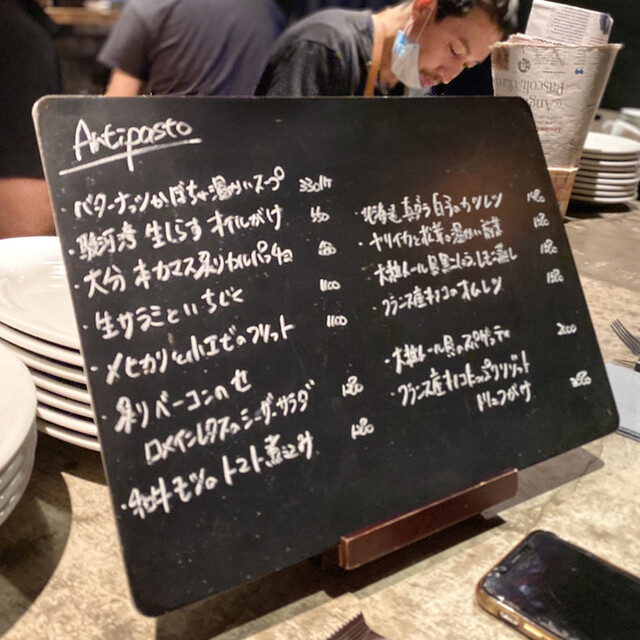 Antipasto
・バターナッツかぼちゃ温かいスープ 330
・駿河湾 生しらす オイルがけ
・大分 本カマス炙りカルパッチョ
・生サラミといちじく 1100
・メヒカリと小エビのフリット 1100
・炙りベーコンのせ
ロメインレタスのシーザーサラダ
・和牛モツのトマト煮込み
・北海道 真だら白子のカツレツ
・ヤリイカと 温かい前菜
・大粒ムール貝 レモン蒸し
・フランス産キノコのオムレツ
・大粒ムール貝のスパゲッティ
・フランス産キノコたっぷりリゾット
トリュフがけ